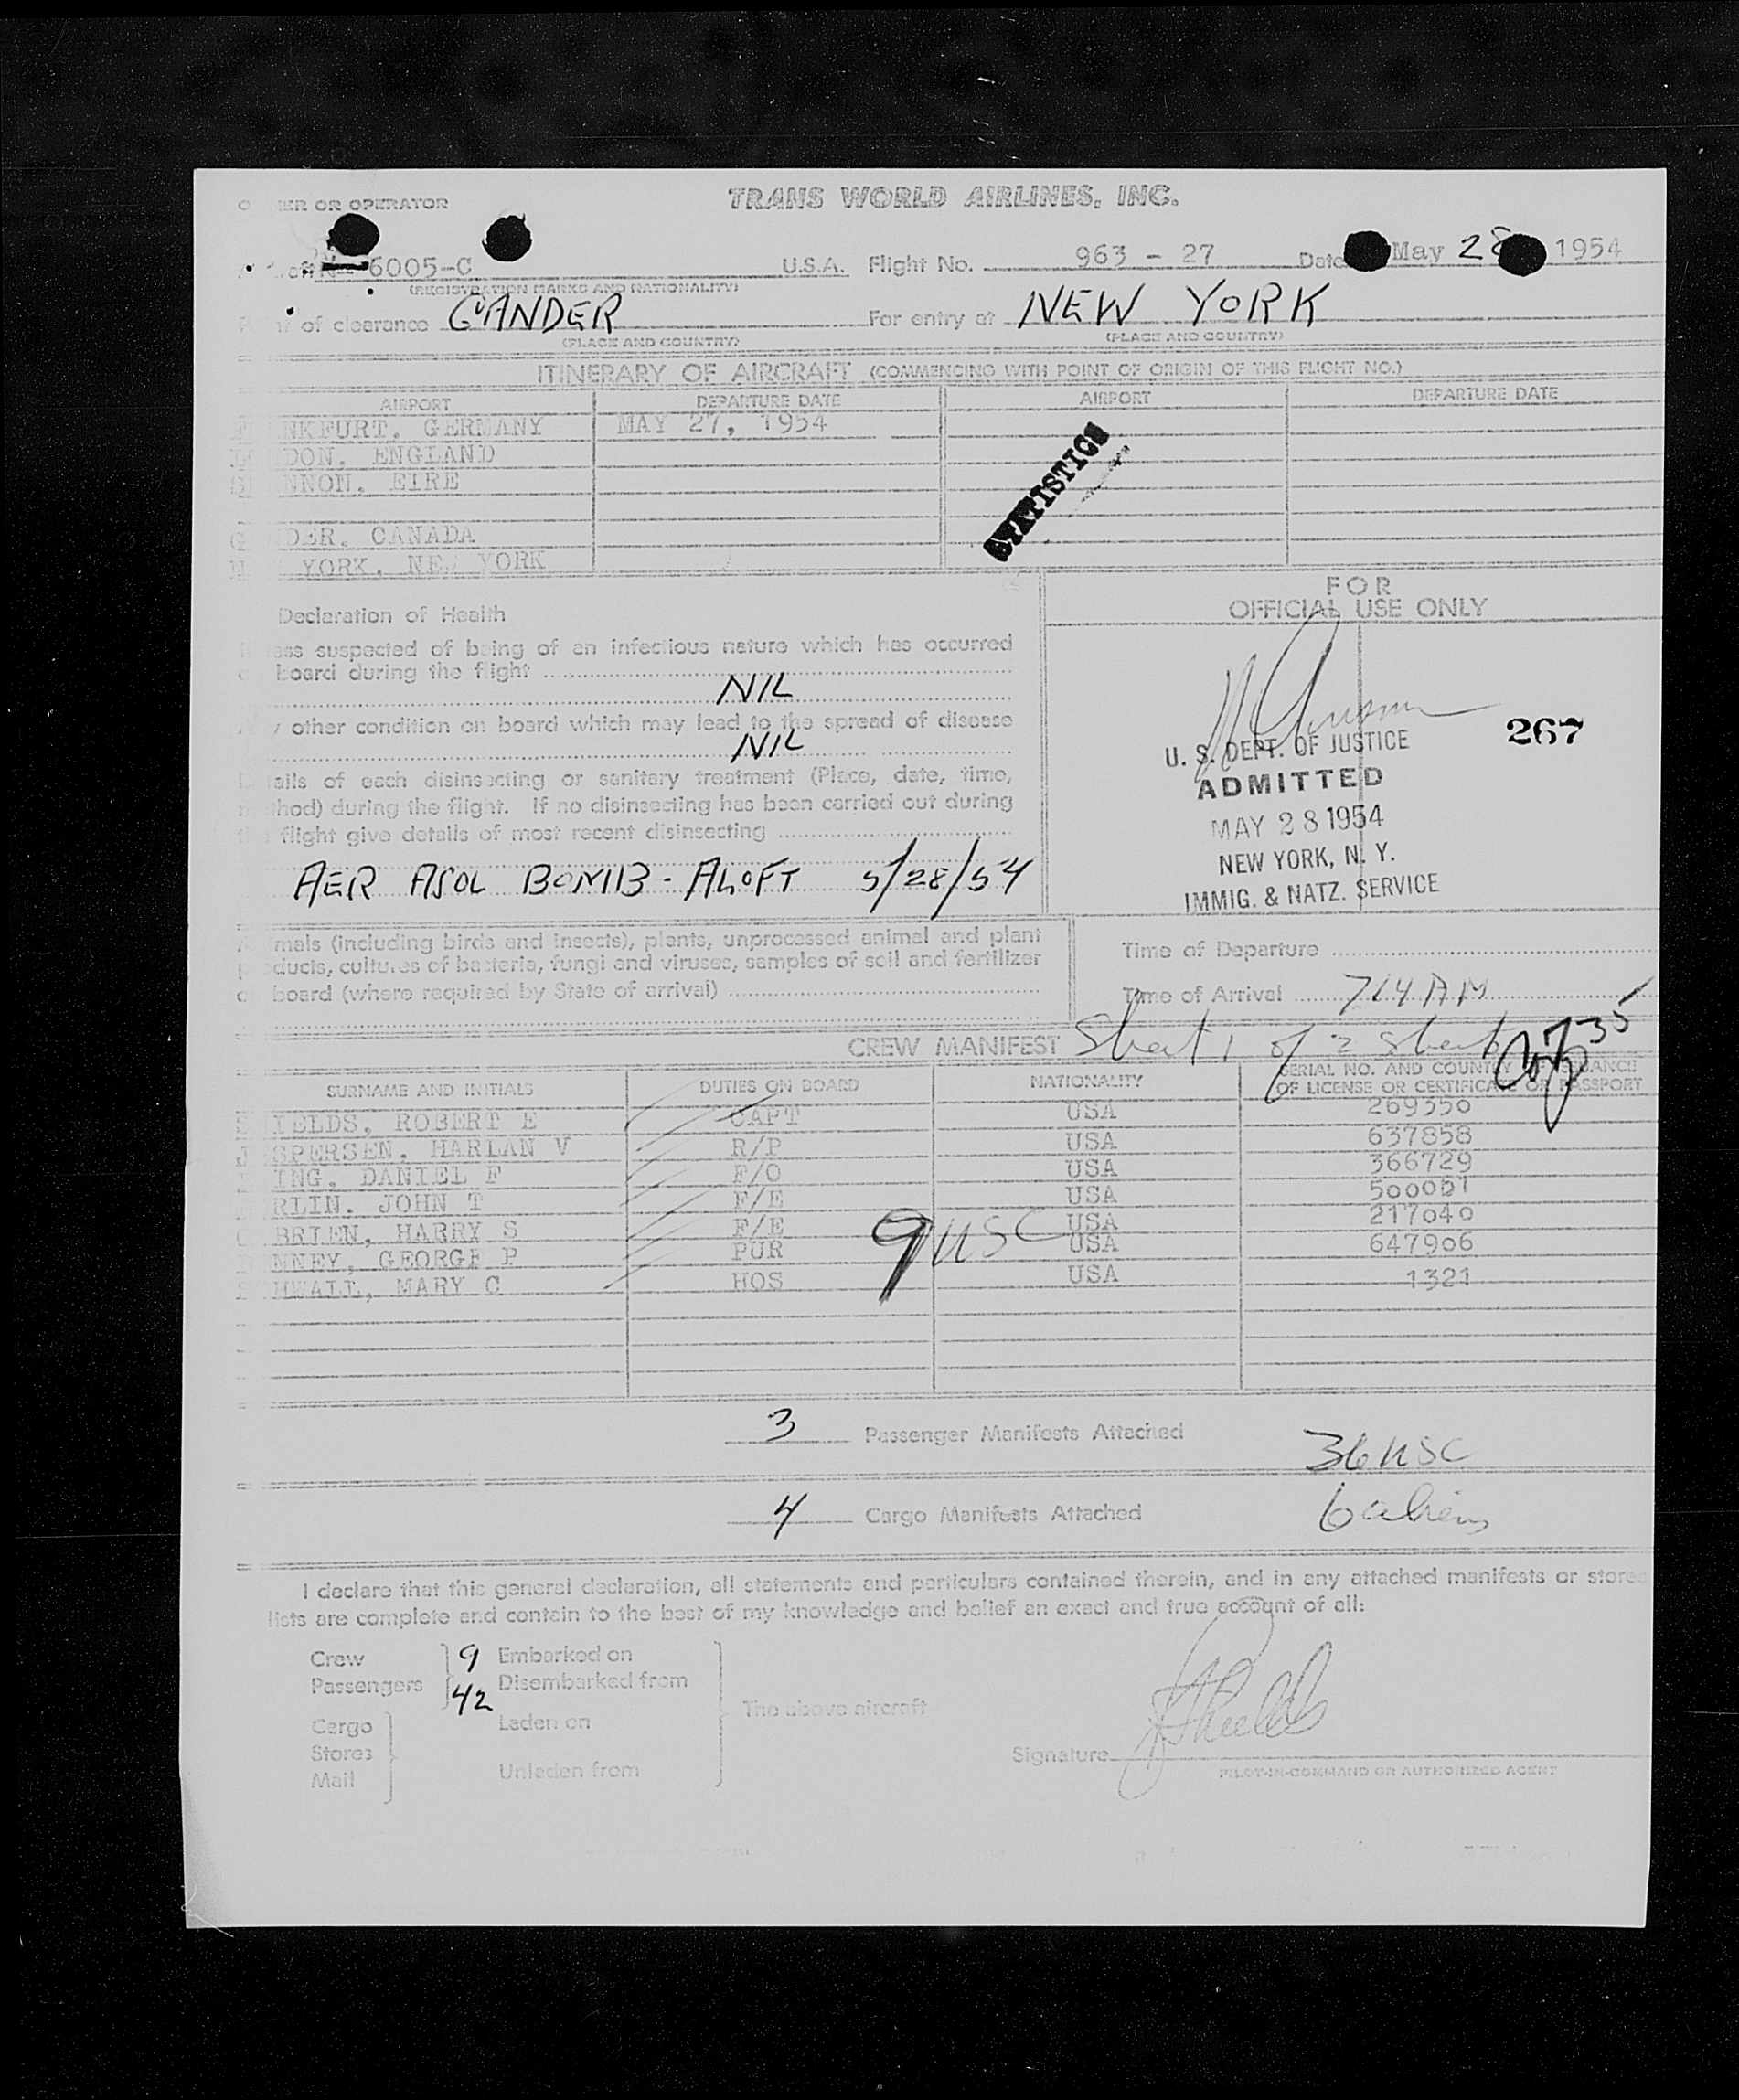 OR OPERATOR
TRANS WORLD AIRLINES, INC.
6005-C U.S.A. Flight No. 963 - 27 Date May 28 1954
(REGISTRATION MARKS AND NATIONALITY)
of clearance GANDER For entry at NEW YORK
(PLACE AND COUNTRY) (PLACE AND COUNTRY)
ITINERARY OF AIRCRAFT (COMMENCING WITH POINT OF ORIGIN OF THIS FLIGHT NO.)
AIRPORT DEPARTURE DATE AIRPORT DEPARTURE DATE
NKFURT. GERMANY MAY 27, 1954
DON. ENGLAND
NNON. EIRE
DER. CANADA
YORK. NE YORK
STATISTICS
FOR
OFFICIAL USE ONLY
Declaration of Health
suspected of being of an infectious nature which has occurred
board during the flight
NIL
other condition on board which may lead to the spread of disease
NIL
ails of each disinsecting or sanitary treatment (Place, date, time,
hod) during the flight. If no disinsecting has been carried out during
flight give details of most recent disinsecting
AER ASOL BOMB - ALOFT 5/28/54
U. S. DEPT. OF JUSTICE
ADMITTED
MAY 28 1954
NEW YORK, N. Y.
IMMIG. & NATZ. SERVICE
267
mals (including birds and insects), plants, unprocessed animal and plant
ducts, cultures of bacteria, fungi and viruses, samples of soil and fertilizer
board (where required by State of arrival)
Time of Departure
Time of Arrival 714 AM
CREW MANIFEST Sheet 1 of 2 sheets
SURNAME AND INITIALS DUTIES ON BOARD NATIONALITY SERIAL NO. AND COUNTRY OF LICENSE OR CERTIFICATE OR PASSPORT
IELDS, ROBERT E CAPT USA 269350
SPERSEN. HARLAN V R/P USA 637858
ING. DANIEL F F/O USA 366729
RLIN. JOHN T F/E USA
BRIEN, HARRY S F/E USA 217040
NNEY, GEORGE P PUR USA 647906
HWALL, MARY C HOS USA 1321
9 USC
3 Passenger Manifests Attached
36 USC
4 Cargo Manifests Attached
6 aliens
I declare that this general declaration, all statements and particulars contained therein, and in any attached manifests or stores
lists are complete and contain to the best of my knowledge and belief an exact and true account of all:
Crew 9 Embarked on
Passengers 42 Disembarked from
The above aircraft
Cargo Laden on
Stores
Mail Unladen from
Signature
PILOT-IN-COMMAND OR AUTHORIZED AGENT